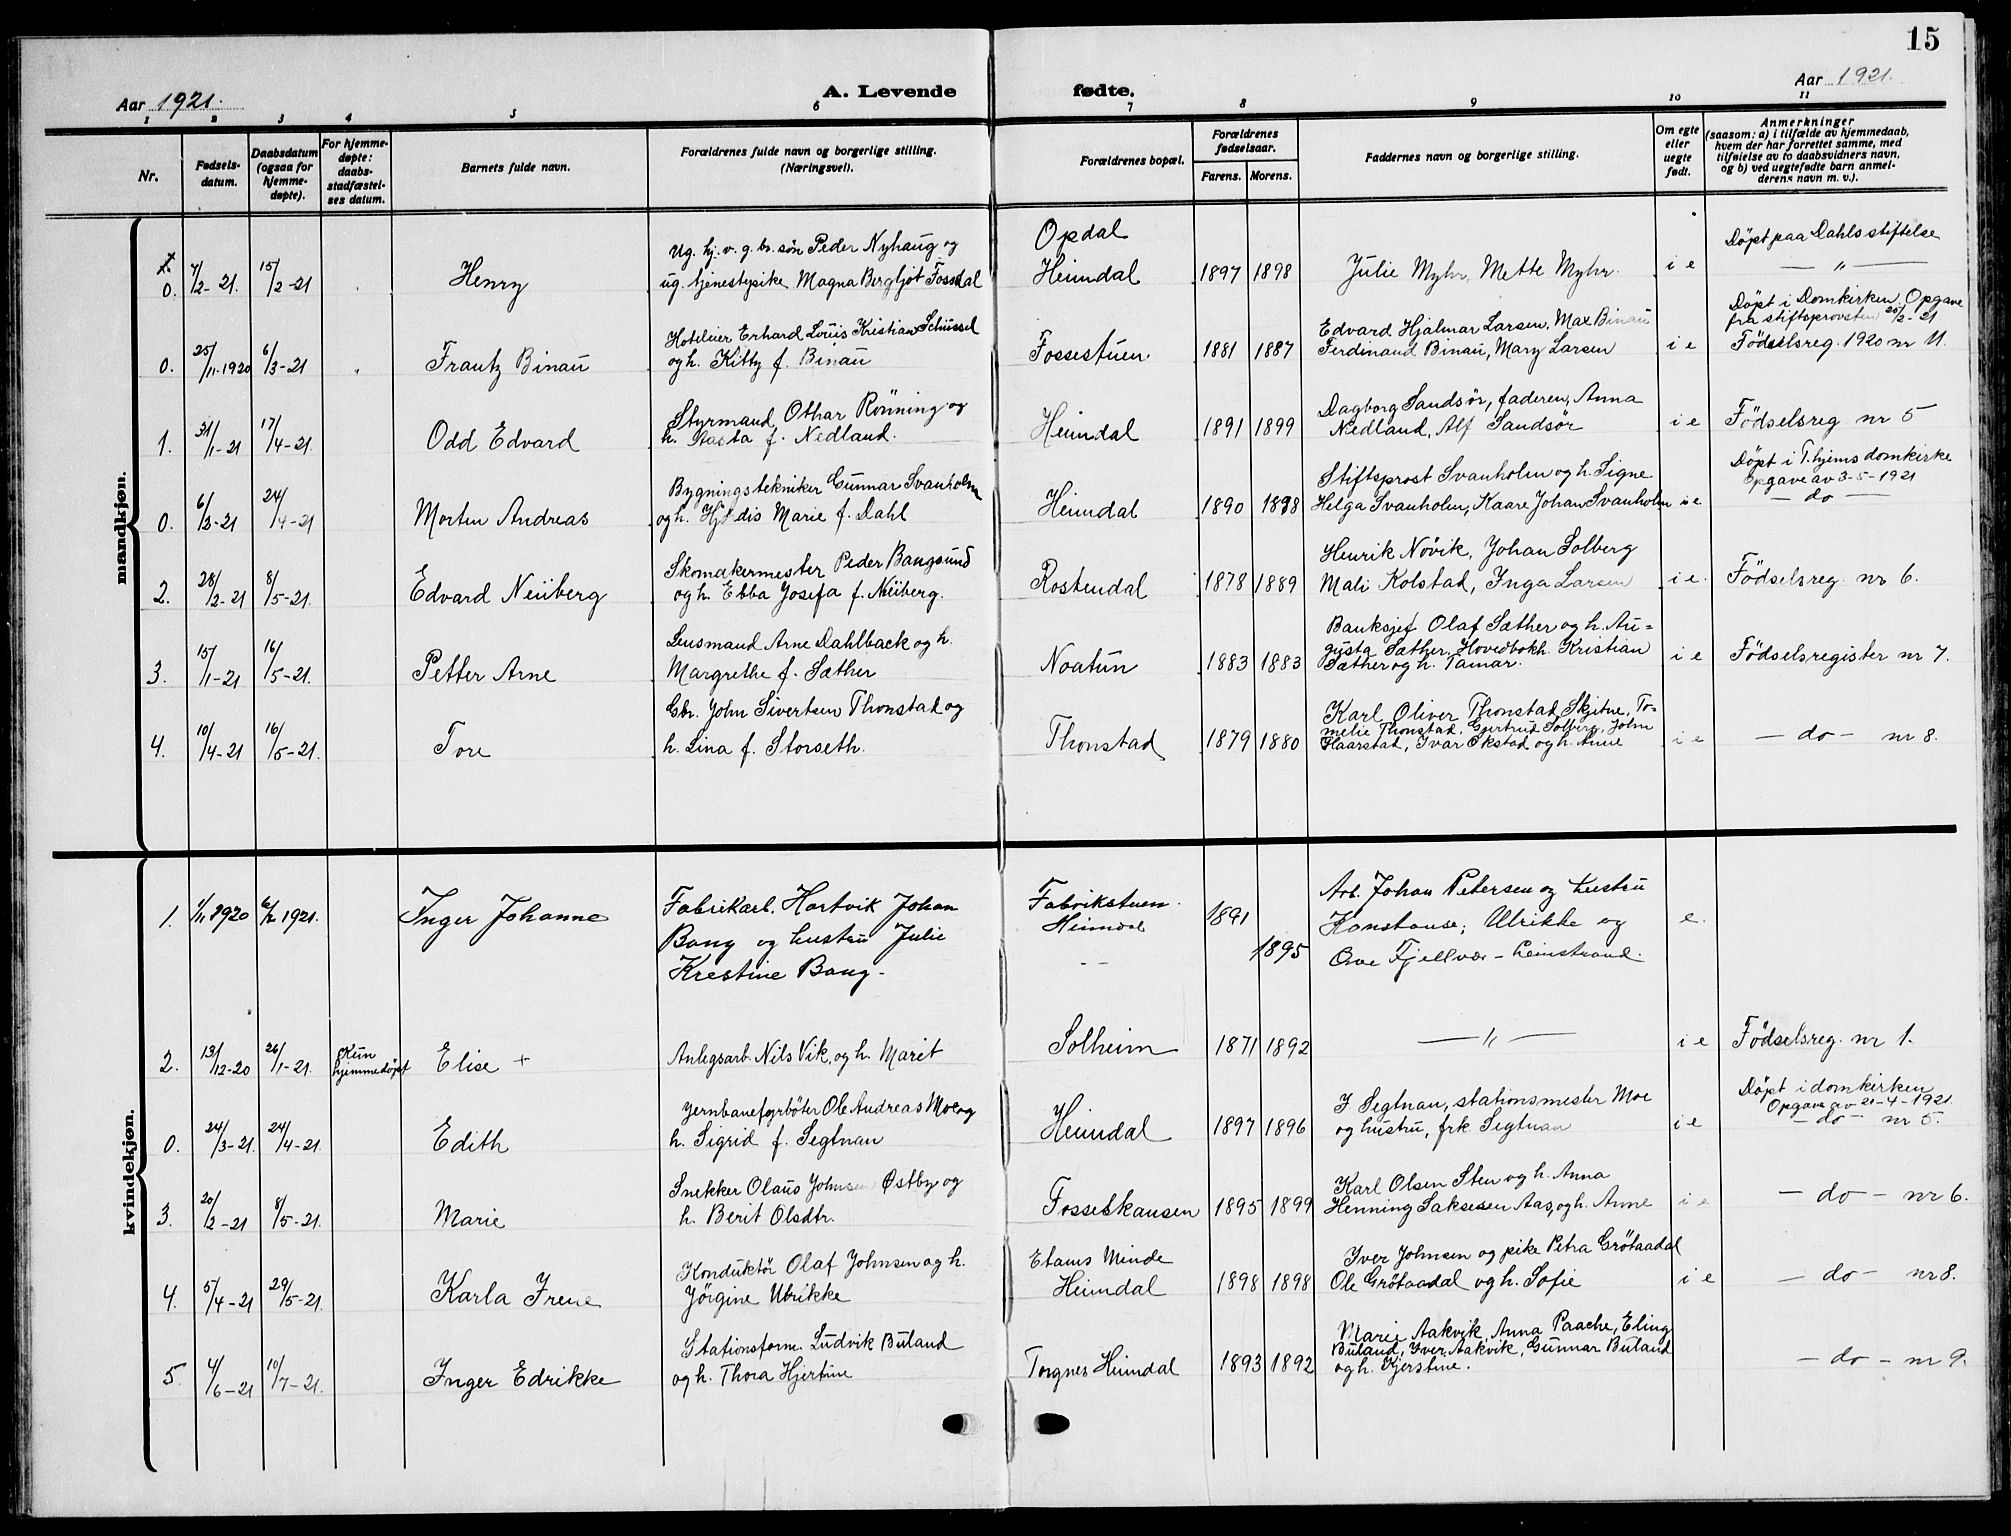 15
Aar 1921.
A. Levende fødte.
Aar 1921.
1 2 3 4 5 6 7 8 9 10 11
Nr.
Fødsels-
datum.
Daabsdatum
(ogsaa for
hjemme-
døpte).
For hjemme-
døpte:
daabs-
stadfæstel-
ses datum.
Barnets fulde navn.
Forældrenes fulde navn og borgerlige stilling.
(Næringsvei).
Forældrenes bopæl.
Forældrenes
fødselsaar.
Farens. Morens.
Faddernes navn og borgerlige stilling.
Om egte
eller
uegte
født.
Anmerkninger
(saasom: a) i tilfælde av hjemmedaab,
hvem der har forrettet samme, med
tilføielse av to daabsvidners navn,
og b) ved uegtefødte barn anmel-
derens navn m. v.).
mandkjøn.
0. 7/2-21. 15/2-21 Henry
Ug. hj. v. g. br. søn Peder Nyhaug og
ug. tjenestepike Magna Bergljot Fossdal
Opdal
Heimdal 1897 1898
Julie Myhr, Mette Myhr. i e
Døpt paa Dahls stiftelse
— " —
0. 25/11-1920 6/3-21 Frantz Binau
Hoteleier Erhard Louis Kristian Schüssel
og h. Kitty f. Binau
Fossestuen 1881 1887
Edvard Hjalmar Larsen, Max Binau
Ferdinand Binau, Mary Larsen i e
Døpt i Domkirken, Opgave
fra stiftsprovsten 25/2-21
Fødselsreg. 1920 nr 11.
1. 31/1-21 17/4-21. Odd Edvard
Styrmand Othar Rönning og
h. Aasta f. Nedland.
Heimdal 1891 1899
Dagborg Sandsør, faderen, Anna
Nedland, Alf Sandsør i e
Födselsreg nr 5
0. 6/3-21 24/4-21 Morten Andreas
Bygningstekniker Gunnar Svanholm
og h. Hjördis Marie f. Dahl
Heimdal 1890 1898
Stiftsprost Svanholm og h. Signe
Helga Svanholm, Kaare Johan Svanholm i e.
Døpt i T.hjems domkirke
Opgave av 3-5-1921
— do —
2. 28/2-21 8/5-21. Edvard Neüberg
Skomakermester Peder Bangsund
og h. Ebba Josefa f. Neüberg.
Rostendal 1878 1889
Henrik Növik, Johan Solberg
Mali Kolstad, Inga Larsen i e.
Födselsreg. nr 6.
3. 15/1-21 16/5-21. Petter Arne
Lensmand Arne Dahlback og h.
Margrethe f. Sæther
Noatun 1883 1883
Banksjef Olaf Sæther og h. Au=
gusta Sæther, Hovedbokh. Kristian
Sæther og h. Tamar. i e
Födselsregister nr 7.
4. 10/4-21 16/5-21. Tore
Gbr. John Sivertsen Thonstad og
h. Lina f. Storseth.
Thonstad 1879 1880
Karl Oliver Thonstad Skjetne, To-
melie Thonstad, Gjertrud Solberg, John
Flaarstad, Ivar Ekstad og h. Anne i e
— do — nr 8.
kvindekjøn.
1. 1/11 1920 6/2 1921. Inger Johanne
Fabrikarb. Hartvik Johan
Bang og hustru Julie
Krestine Bang -
Fabrikstuen.
Heimdal 1891
- - 1895
Arb. Johan Petersen og hustru
Konstanse; Ulrikke og
Ove Fjellvær - Leinstrand. e.
2. 13/12-20 26/1-21. Kun
hjemmedøpt Elise +
Anlegsarb. Nils Vik, og h. Marit
Solheim 1871 1892 — " — i e Födselsreg. nr 1.
0. 24/3-21. 24/4-21. Edith
Jernbanefyrbøter Ole Andreas Moe og
h. Sigrid f. Segtnan
Heimdal 1897 1896
J Segtnan, stationsmester Moe
og hustru, frk Segtnan i e
Døpt i domkirken
Opgave av 21-4-1921
— do — nr 5.
3. 20/2-21 8/5-21. Marie
Snekker Olaus Johnsen Østby og
h. Berit Olsdtr.
Fosseskansen 1895 1899
Karl Olsen Sten og h. Anna
Henning Saksesen Aas, og h. Anne i e
— do — nr 6.
4. 5/4-21 29/5-21. Karla Irene
Konduktör Olaf Johnsen og h.
Jörgine Ulrikke
Etams Minde
Heimdal 1898 1898
Iver Johnsen og pike Petra Grötaadal
Ole Grötaadal og h. Sofie i e
— do — nr 8.
5. 4/6-21 10/7-21. Inger Edrikke
Stationsform. Ludvik Buland
og h. Thora Hjertine
Torgnes Heimdal 1893 1892
Marie Aakvik, Anna Paache, Eling
Buland, Iver Aakvik, Gunnar Buland
og h. Kjerstine.
— do — nr 9.